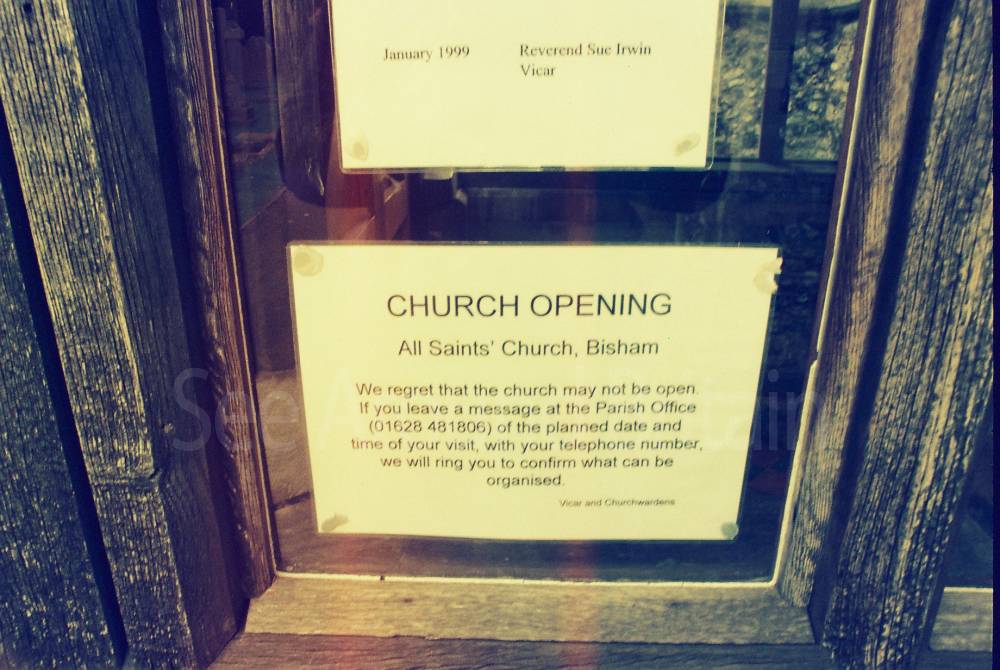 January 1999 Reverend Sue Irwin
Vicar
CHURCH OPENING
All Saints' Church, Bisham
We regret that the church may not be open.
If you leave a message at the Parish Office
(01628 481806) of the planned date and
time of your visit, with your telephone number,
we will ring you to confirm what can be
organised.
Vicar and Churchwardens
See